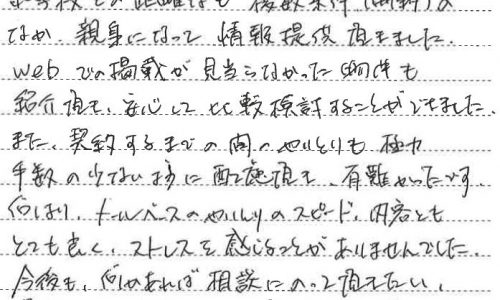 学校との距離など 複数条件(制約)の
なか、親身になって 情報提供 頂きました。
webでの掲載が見当らなかった物件も
紹介頂き、安心して比較検討することができました。
また、契約するまでの間のやりとりも極力
手数の少ないように配慮頂き、有難かったです。
何より、メールベースのやりとりのスピード、内容とも
とても良く、ストレスを感じることがありませんでした。
今後も、何かあれば 相談にのって頂きたい。